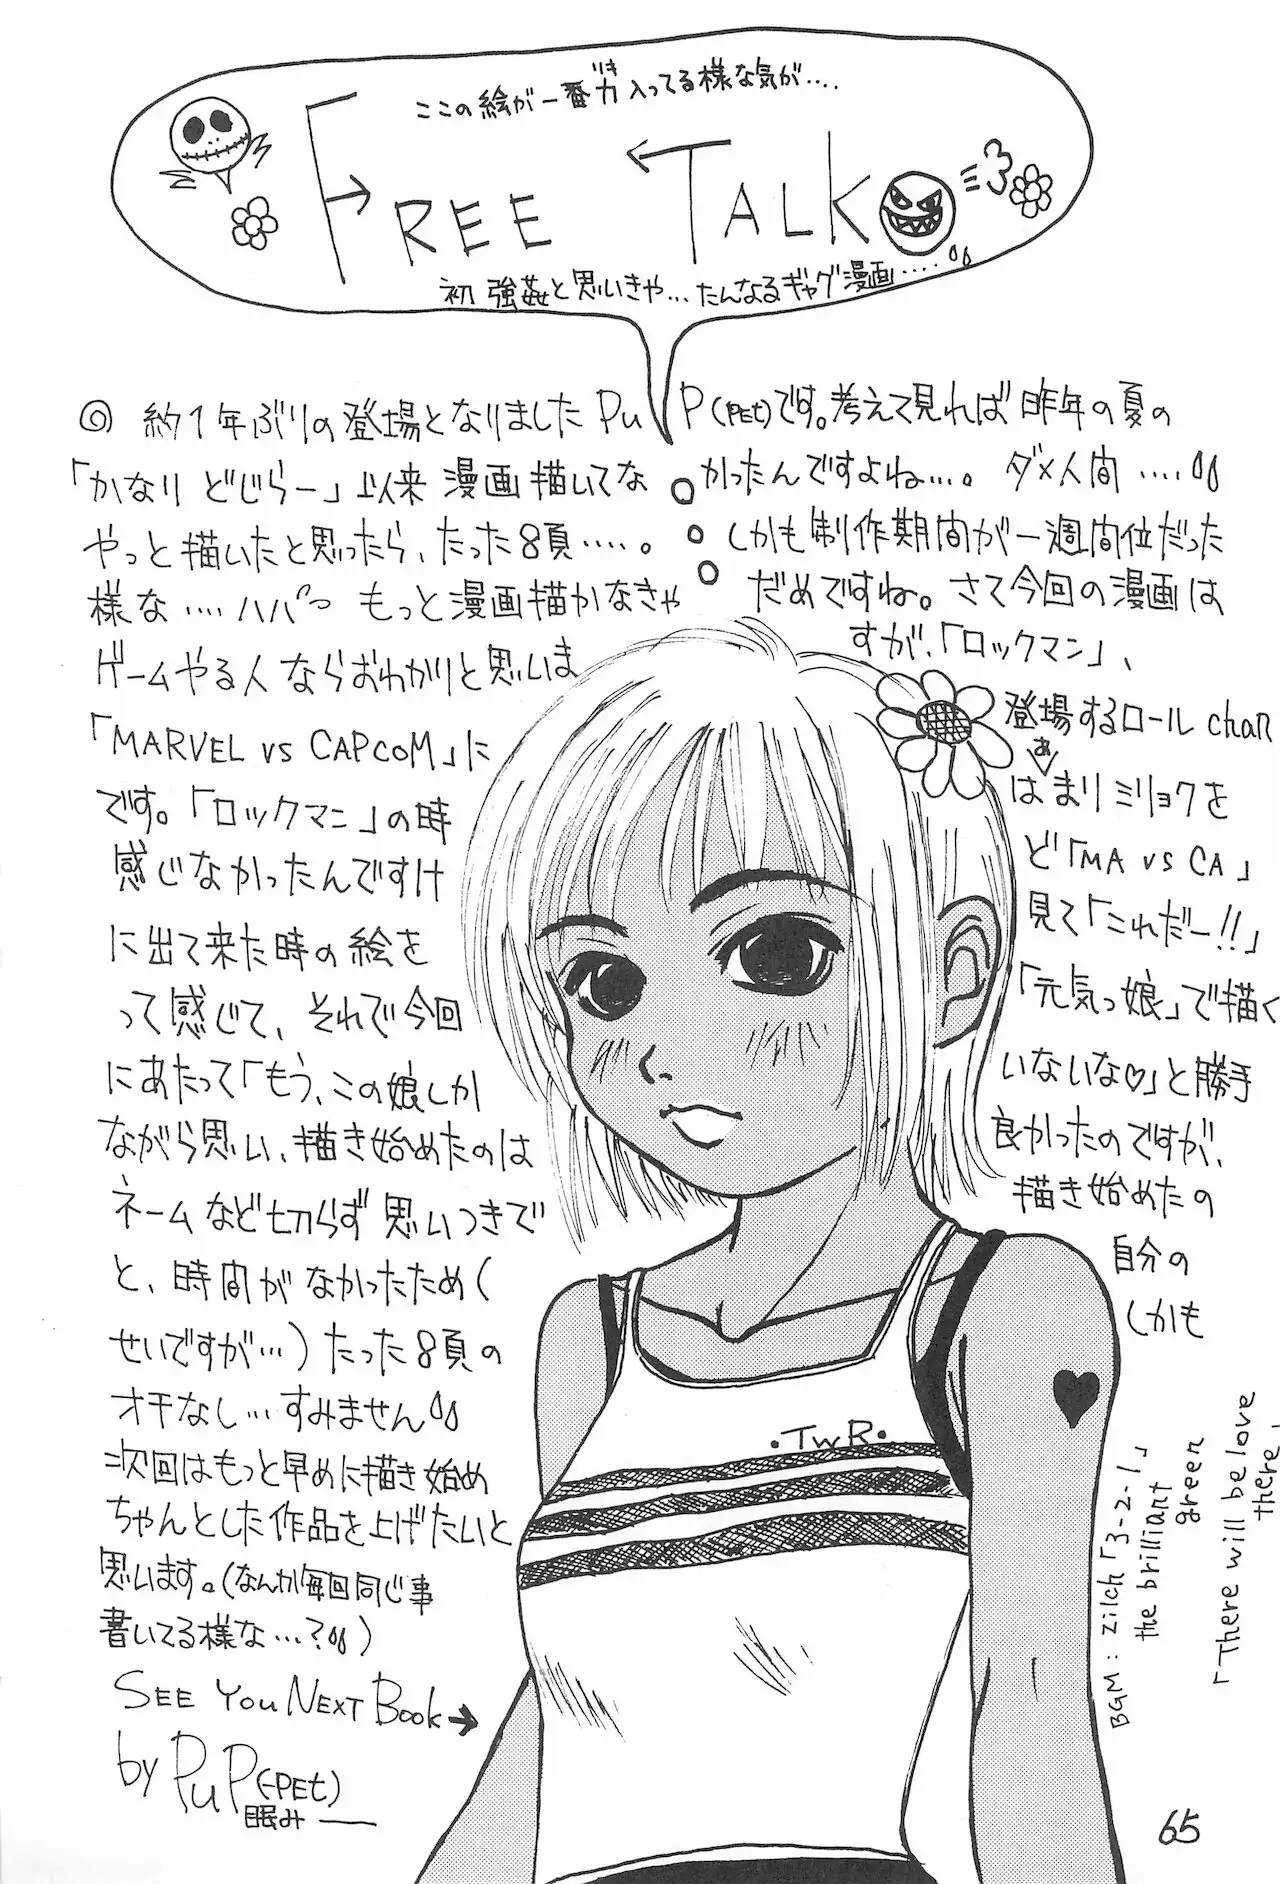 ここの絵が一番力入ってる様な気が‥‥
FREE TALK
初強姦と思いきや…たんなるギャグ漫画‥‥
◎ 約1年ぶりの登場となりましたPuP(PEt)です。考えて見れば昨年の夏の
「かなり どじらー」以来 漫画描いてなかったんですよね…。ダメ人間‥‥
やっと描いたと思ったら、たった8頁‥‥。しかも制作期間が一週間位だった
様な‥‥ハハハっ もっと漫画描かなきゃだめですね。さて今回の漫画は
ゲームやる人ならおわかりと思いますが、「ロックマン」、
「MARVEL vs CAPCOM」に登場するロールchan
です。「ロックマン」の時はあまりミリョクを
感じなかったんですけど「MA vs CA」
に出て来た時の絵を見て「これだー!!」
って感じて、それで今回「元気っ娘」で描く
にあたって「もう、この娘しかいないな♡」と勝手
ながら思い、描き始めたのは良かったのですが、
ネームなど切らず思いつきで描き始めたの
と、時間がなかったため(自分の
せいですが…)たった8頁のしかも
オチなし…すみません
次回はもっと早めに描き始め
ちゃんとした作品を上げたいと
思います。(なんか毎回同じ事
書いてる様な…?)
SEE You NEXT Book→
by PuP(-PEt)
眠みー
・TWR・
BGM: zilch「3-2-1」
the brilliant
green
「There will be love
there」
65